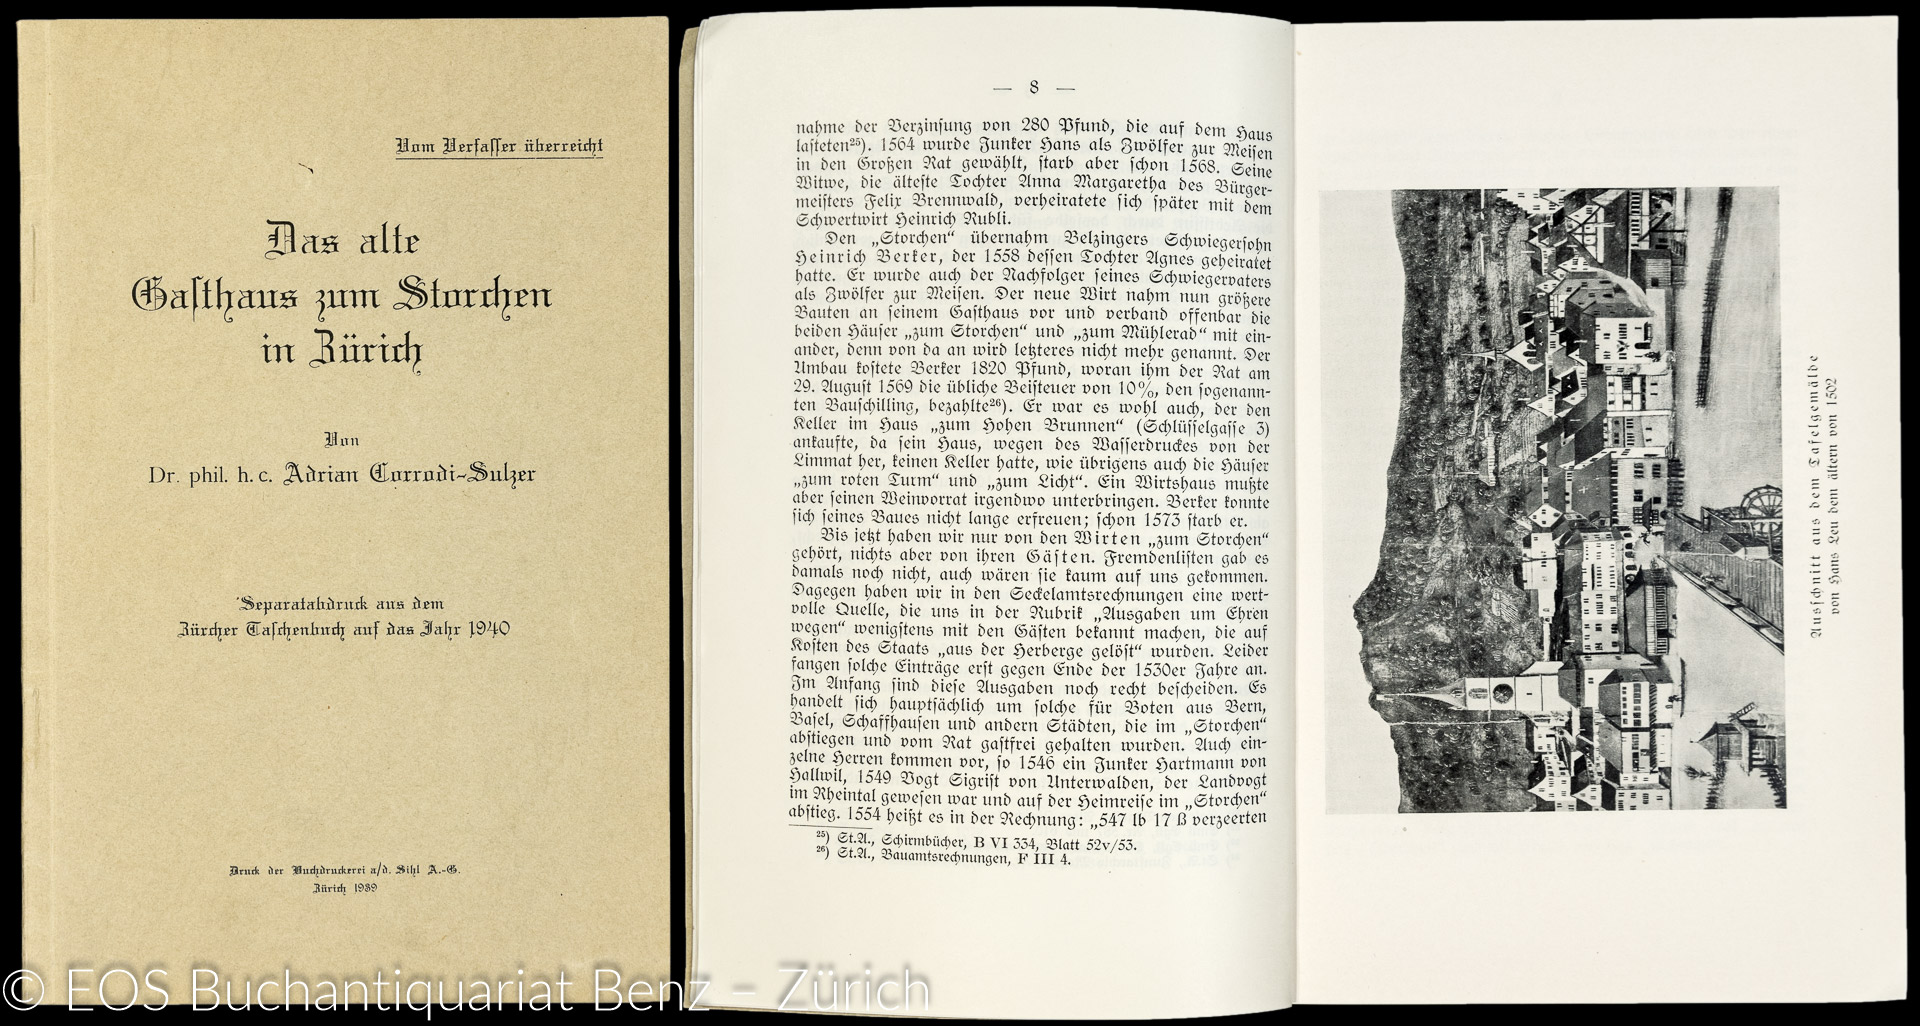 Vom Verfasser überreicht
Das alte
Gasthaus zum Storchen
in Zürich
Von
Dr. phil. h. c. Adrian Corrodi-Sulzer
Separatabdruck aus dem
Zürcher Taschenbuch auf das Jahr 1940
Druck der Buchdruckerei a/d. Sihl A.-G.
Zürich 1939
— 8 —
nahme der Verzinsung von 280 Pfund, die auf dem Haus
lasteten²⁵). 1564 wurde Junker Hans als Zwölfer zur Meisen
in den Großen Rat gewählt, starb aber schon 1568. Seine
Witwe, die älteste Tochter Anna Margaretha des Bürger-
meisters Felix Brennwald, verheiratete sich später mit dem
Schwertwirt Heinrich Rubli.
Den „Storchen“ übernahm Belzingers Schwiegersohn
Heinrich Berker, der 1558 dessen Tochter Agnes geheiratet
hatte. Er wurde auch der Nachfolger seines Schwiegervaters
als Zwölfer zur Meisen. Der neue Wirt nahm nun größere
Bauten an seinem Gasthaus vor und verband offenbar die
beiden Häuser „zum Storchen“ und „zum Mühlerad“ mit ein-
ander, denn von da an wird letzteres nicht mehr genannt. Der
Umbau kostete Berker 1820 Pfund, woran ihm der Rat am
29. August 1569 die übliche Beisteuer von 10%, den sogenann-
ten Bauschilling, bezahlte²⁶). Er war es wohl auch, der den
Keller im Haus „zum Hohen Brunnen“ (Schlüsselgasse 3)
ankaufte, da sein Haus, wegen des Wasserdruckes von der
Limmat her, keinen Keller hatte, wie übrigens auch die Häuser
„zum roten Turm“ und „zum Licht“. Ein Wirtshaus mußte
aber seinen Weinvorrat irgendwo unterbringen. Berker konnte
sich seines Baues nicht lange erfreuen; schon 1573 starb er.
Bis jetzt haben wir nur von den Wirten „zum Storchen“
gehört, nichts aber von ihren Gästen. Fremdenlisten gab es
damals noch nicht, auch wären sie kaum auf uns gekommen.
Dagegen haben wir in den Seckelamtsrechnungen eine wert-
volle Quelle, die uns in der Rubrik „Ausgaben um Ehren
wegen“ wenigstens mit den Gästen bekannt machen, die auf
Kosten des Staats „aus der Herberge gelöst“ wurden. Leider
fangen solche Einträge erst gegen Ende der 1530er Jahre an.
Im Anfang sind diese Ausgaben noch recht bescheiden. Es
handelt sich hauptsächlich um solche für Boten aus Bern,
Basel, Schaffhausen und andern Städten, die im „Storchen“
abstiegen und vom Rat gastfrei gehalten wurden. Auch ein-
zelne Herren kommen vor, so 1546 ein Junker Hartmann von
Hallwil, 1549 Vogt Sigrist von Unterwalden, der Landvogt
im Rheintal gewesen war und auf der Heimreise im „Storchen“
abstieg. 1554 heißt es in der Rechnung: „547 lb 17 ß verzeerten
²⁵) St.A., Schirmbücher, B VI 334, Blatt 52v/53.
²⁶) St.A., Bauamtsrechnungen, F III 4.
Ausschnitt aus dem Tafelgemälde
von Hans Leu dem ältern von 1502
© EOS Buchantiquariat Benz – Zürich